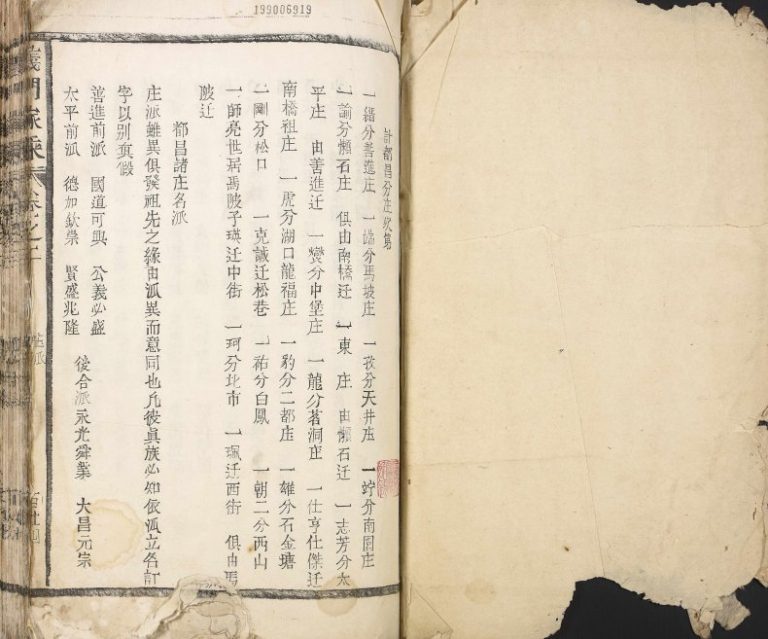 199006919
計都昌分庄次第
一縉分善進庄 一 分馬坡庄 一孜分天井庄 一竚分南園庄
一諭分懶石庄 俱由南橋迁 一東庄 由懶石迁 一志芳分太
平庄 由善進迁 一爕分中堡庄 一龍分茗洞庄 一仕亨仕傑迁
南橋祖庄 一虎分湖口龍福庄 一豹分二都庄 一雄分石金塘
一剛分松口 一克誠迁松巷 一祐分白鳳 一朝二分西山
一師亮世居馬陂子瑛迁中街 一珂分北市 一珮迁西街 俱由馬
陂迁
都昌諸庄名派
庄派雖異俱發祖先之緣由派異而意同也凡彼眞族必知依派立名訂
字以别真假
善進前派 國道可興 公義必盛
太平前派 德加欽崇 賢盛兆隆 後合派永光舜業 大昌元宗
義門家乘 卷之